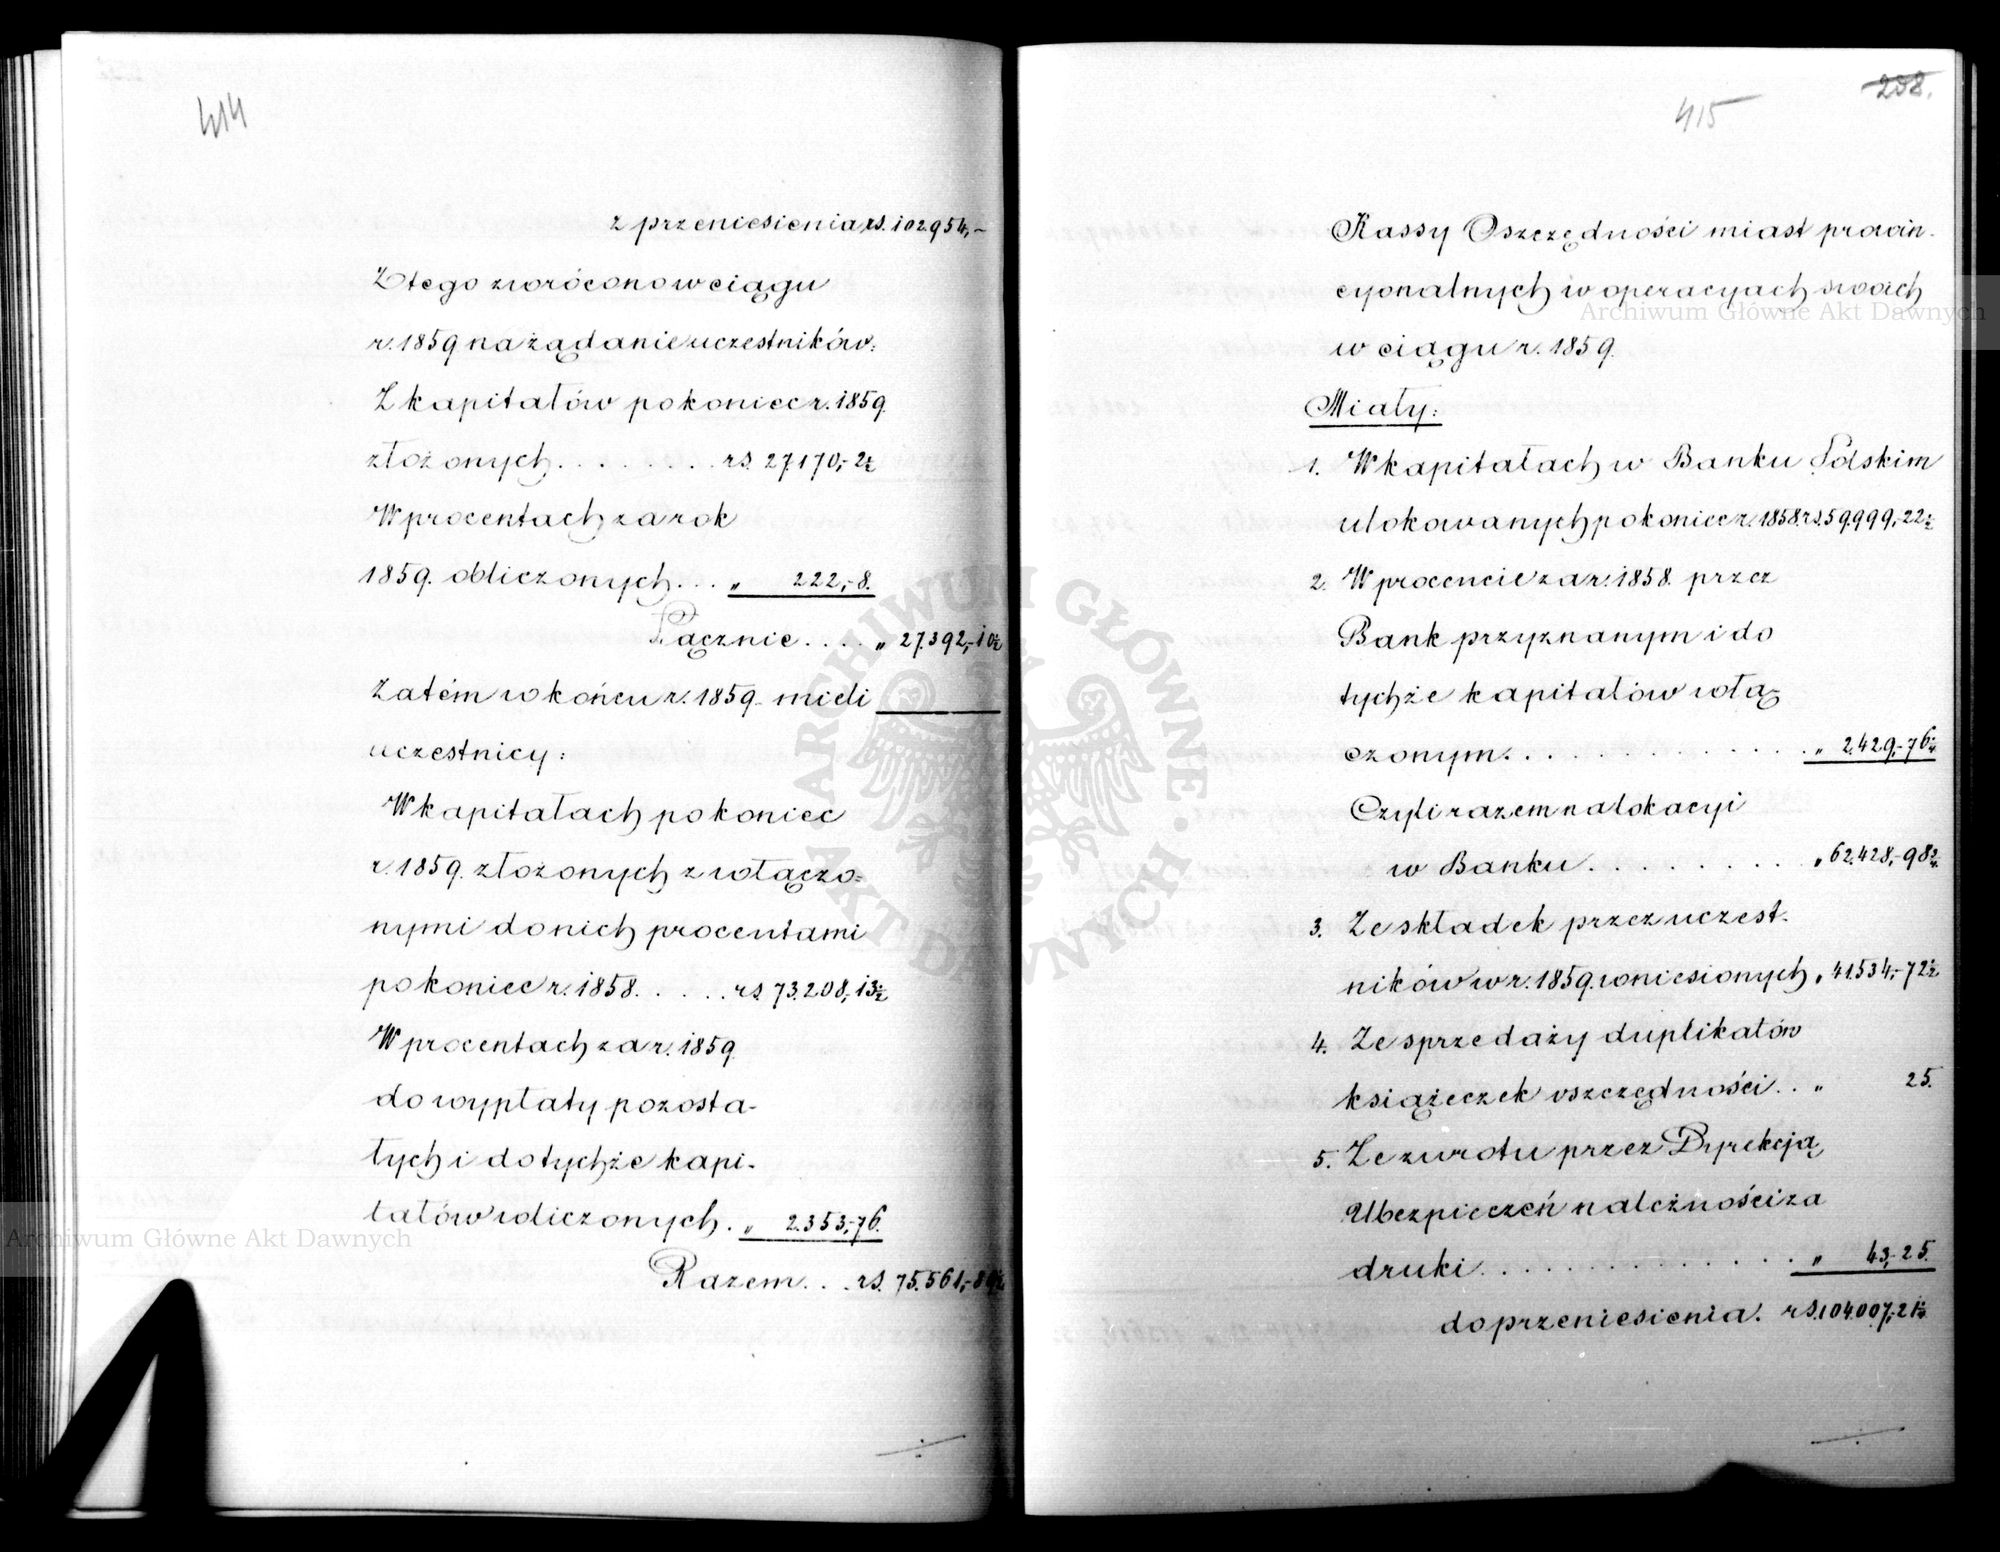 414
z przeniesienia rs. 102954,-
Z tego zwrócono w ciągu
r. 1859 na żądanie uczestników:
Z kapitałów po koniec r. 1859
złożonych . . . . . . . . rs. 27.170,-2½
W procentach za rok
1859. obliczonych . . . „ 222,-8.
Łącznie . . . . „ 27.392,-10½
Zatém w końcu r. 1859. mieli
uczestnicy:
W kapitałach po koniec
r. 1859. złożonych z włączo-
nymi do nich procentami
po koniec r. 1858. . . . . rs. 73.208,-13½
W procentach za r. 1859
do wypłaty pozosta-
łych i do tychże kapi-
tałów wliczonych . „ 2.353,-76.
Razem . . . rs. 75.561,-89½
415
298.
Kassy Oszczędności miast prowin-
cyonalnych w operacyach swoich
w ciągu r. 1859.
Miały:
1. W kapitałach w Banku Polskim
ulokowanych po koniec r. 1858. rs. 59.999,-22½
2. W procencie za r. 1858. przez
Bank przyznanym i do
tychże kapitałów włą-
czonym . . . . . . . . . . . . . . „ 2.429,-76¼
Czyli razem na lokacyi
w Banku . . . . . . . . . . „ 62.428,-98¾
3. Ze składek przez uczest-
ników w r. 1859. wniesionych „ 41.534,-72½
4. Ze sprzedaży duplikatów
książeczek oszczędności . . „ 25.
5. Ze zwrotu przez Dyrekcją
Ubezpieczeń należności za
druki . . . . . . . . . . . . . . „ 43,-25.
do przeniesienia. rs. 104.007,-21¼
Archiwum Główne Akt Dawnych
Archiwum Główne Akt Dawnych
ARCHIWUM GŁÓWNE AKT DAWNYCH